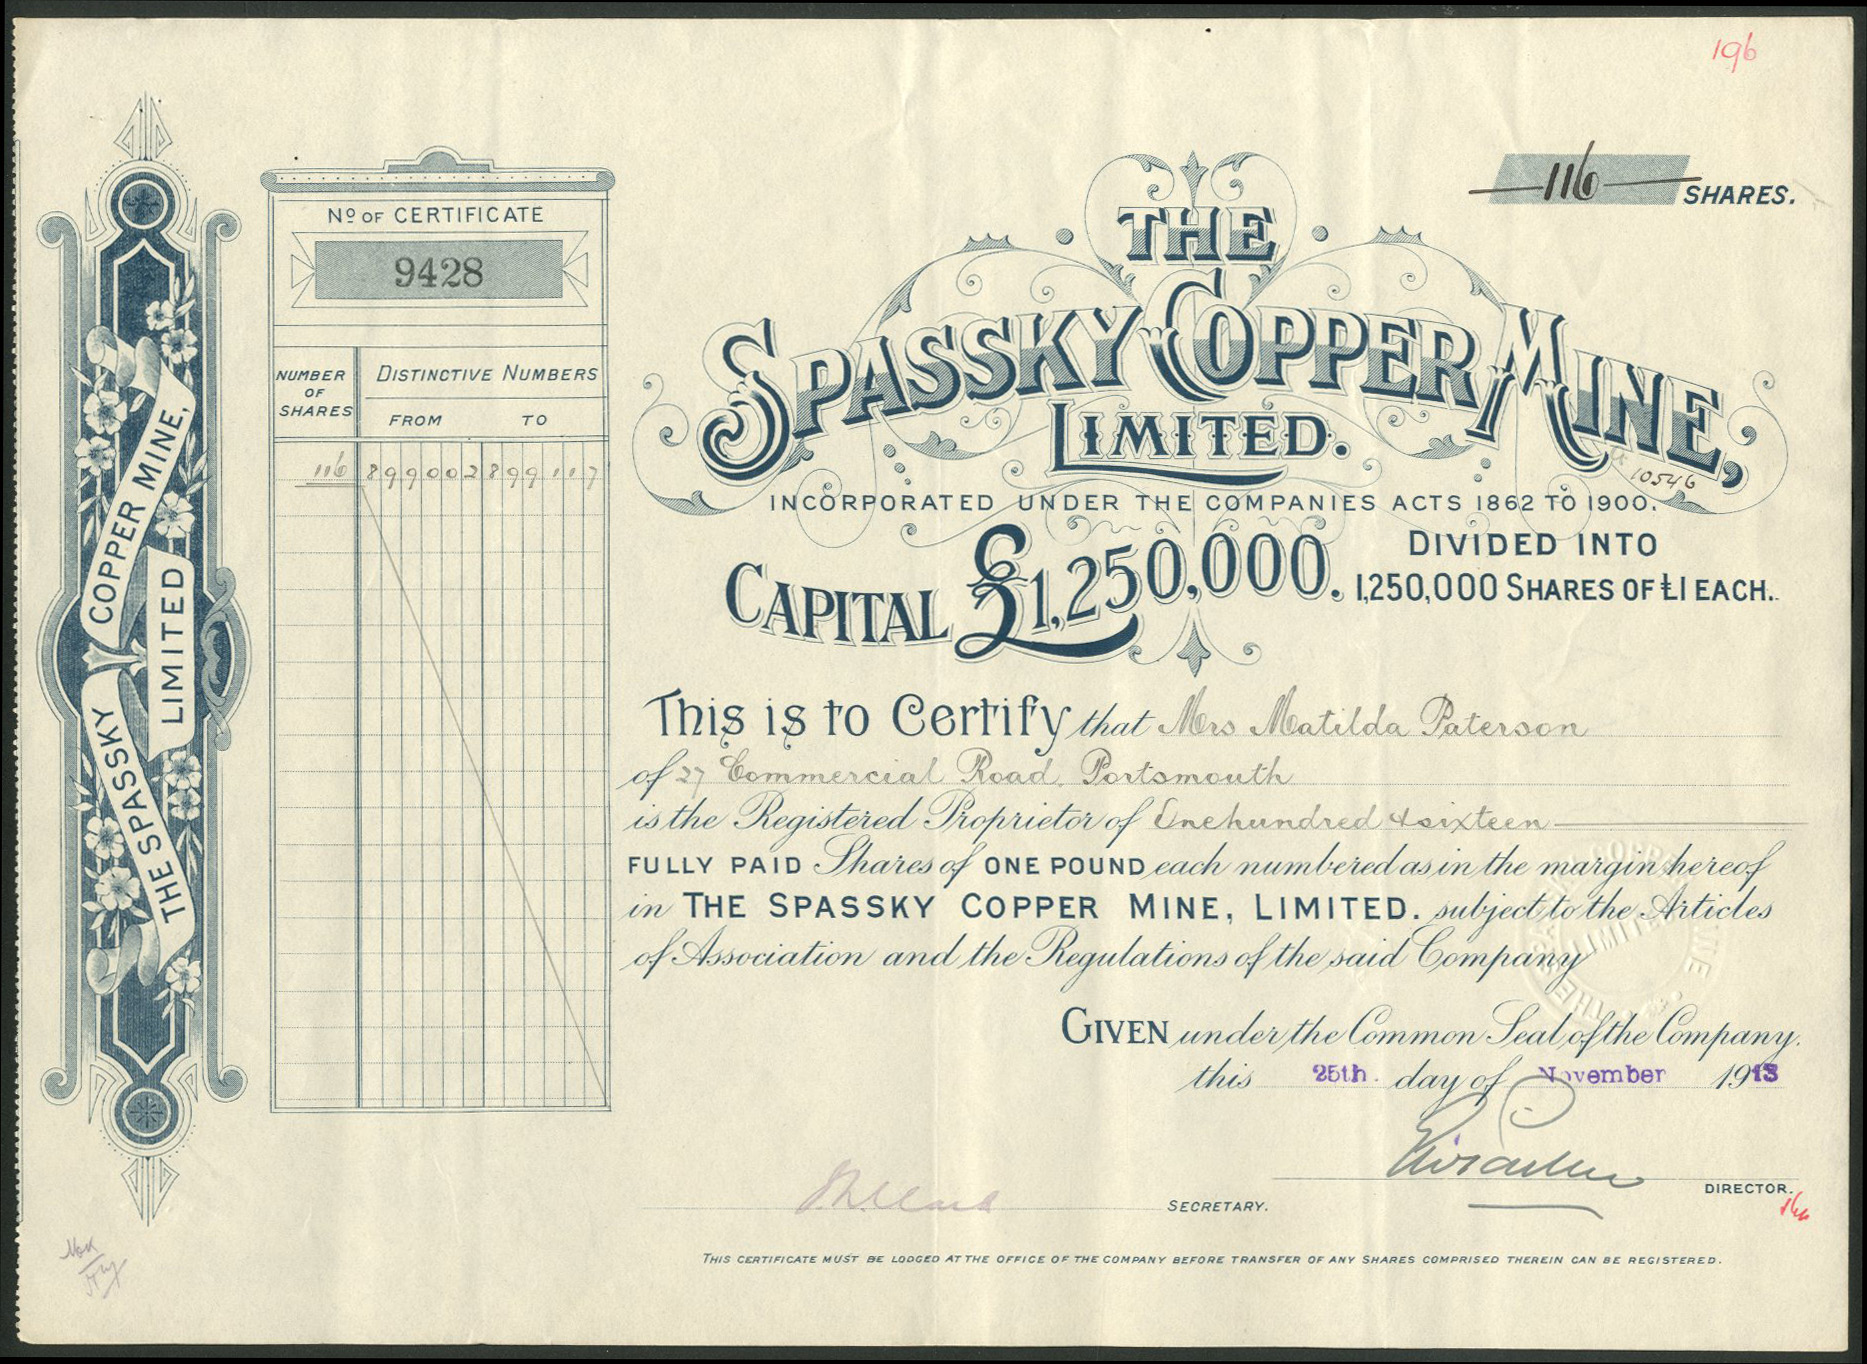 196
116 SHARES.
THE SPASSKY COPPER MINE, LIMITED
Nº OF CERTIFICATE
9428
NUMBER OF SHARES
DISTINCTIVE NUMBERS
FROM TO
116 899002 899117
THE
SPASSKY COPPER MINE,
LIMITED.
10546
INCORPORATED UNDER THE COMPANIES ACTS 1862 TO 1900.
CAPITAL £1,250,000. DIVIDED INTO
1,250,000 SHARES OF £1 EACH.
This is to Certify that Mrs Matilda Paterson
of 27 Commercial Road, Portsmouth
is the Registered Proprietor of One hundred & sixteen
FULLY PAID Shares of ONE POUND each numbered as in the margin hereof
in THE SPASSKY COPPER MINE, LIMITED. subject to the Articles
of Association and the Regulations of the said Company
GIVEN under the Common Seal of the Company.
this 25th. day of November 1913
DIRECTOR.
SECRETARY.
THIS CERTIFICATE MUST BE LODGED AT THE OFFICE OF THE COMPANY BEFORE TRANSFER OF ANY SHARES COMPRISED THEREIN CAN BE REGISTERED.